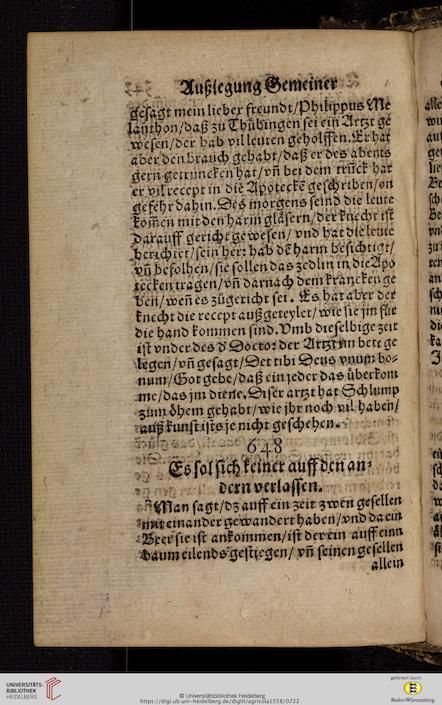 Außlegung Gemeiner
gesagt mein lieber freundt/Philippus Me
lanthon/daß zu Thübingen sei ein Artzt ge
wesen/der hab vil leuten geholffen. Er hat
aber den brauch gehabt/daß er des abents
gern getruncken hat/vñ bei dem trũck hat
er vil recept in die Apoteckẽ geschriben/on
gefehr dahin. Des morgens seind die leute
kom̃en mit den harin glåsern/der knecht ist
darauff gericht gewesen/vnd hat die leute
berichtet/sein herr hab dẽ harm besichtigt/
vñ befolhen/sie sollen das zedlin in die Apo
tecken tragen/vñ darnach dem krancken ge
ben/weñ es zůgericht sei. Es hat aber der
knecht die recept außgeteylet/wie sie jm für
die hand kommen sind. Vmb dieselbige zeit
ist vnder des d Doctor der Artzt im bett ge
legen/vñ gesagt/Det tibi Deus vnum bo-
num/Got gebe/daß ein jeder das überkom
me/das jm diene. Diser artzt hat Schlump
zum öhem gehabt/wie jhr noch vil haben/
auß kunst ists je nicht geschehen.
648
Es sol sich keiner auff den an-
dern verlassen.
Man sagt/dz auff ein zeit zwen gesellen
mit einander gewandert haben/vnd da ein
Beer sie ist ankommen/ist der ein auff einn
baum eilends gestiegen/vñ seinen gesellen
allein
UNIVERSITÄTS-
BIBLIOTHEK
HEIDELBERG
© Universitätsbibliothek Heidelberg
https://digi.ub.uni-heidelberg.de/diglit/agricola1558/0722
gefördert durch
Baden-Württemberg